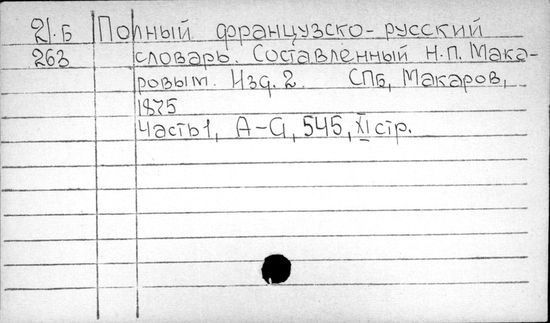 21.Б Полный французско-русский
263 словарь. Составленный Н.П. Мака-
ровым. Изд. 2. СПб, Макаров,
1875
Часть 1, A-G, 545, XI стр.